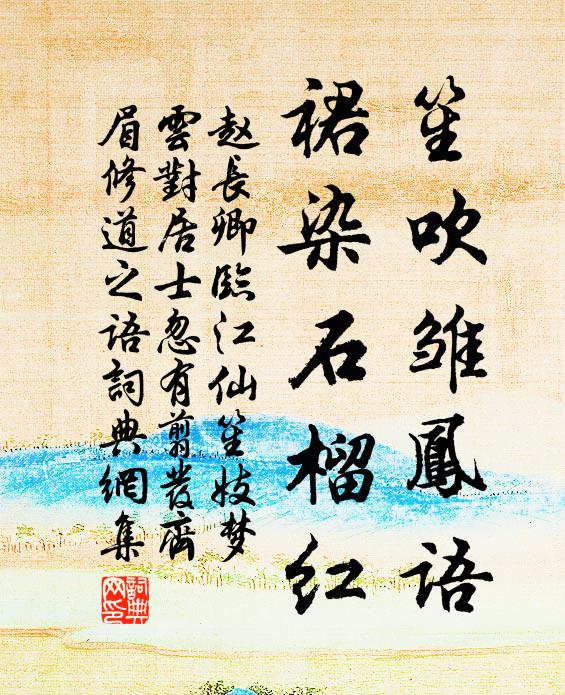 笙吹雏鳳语
裙染石榴红
赵長卿臨江仙笙妓梦
雲對居士忽有翦发齊
眉修道之语詞典網集
詞典
网印